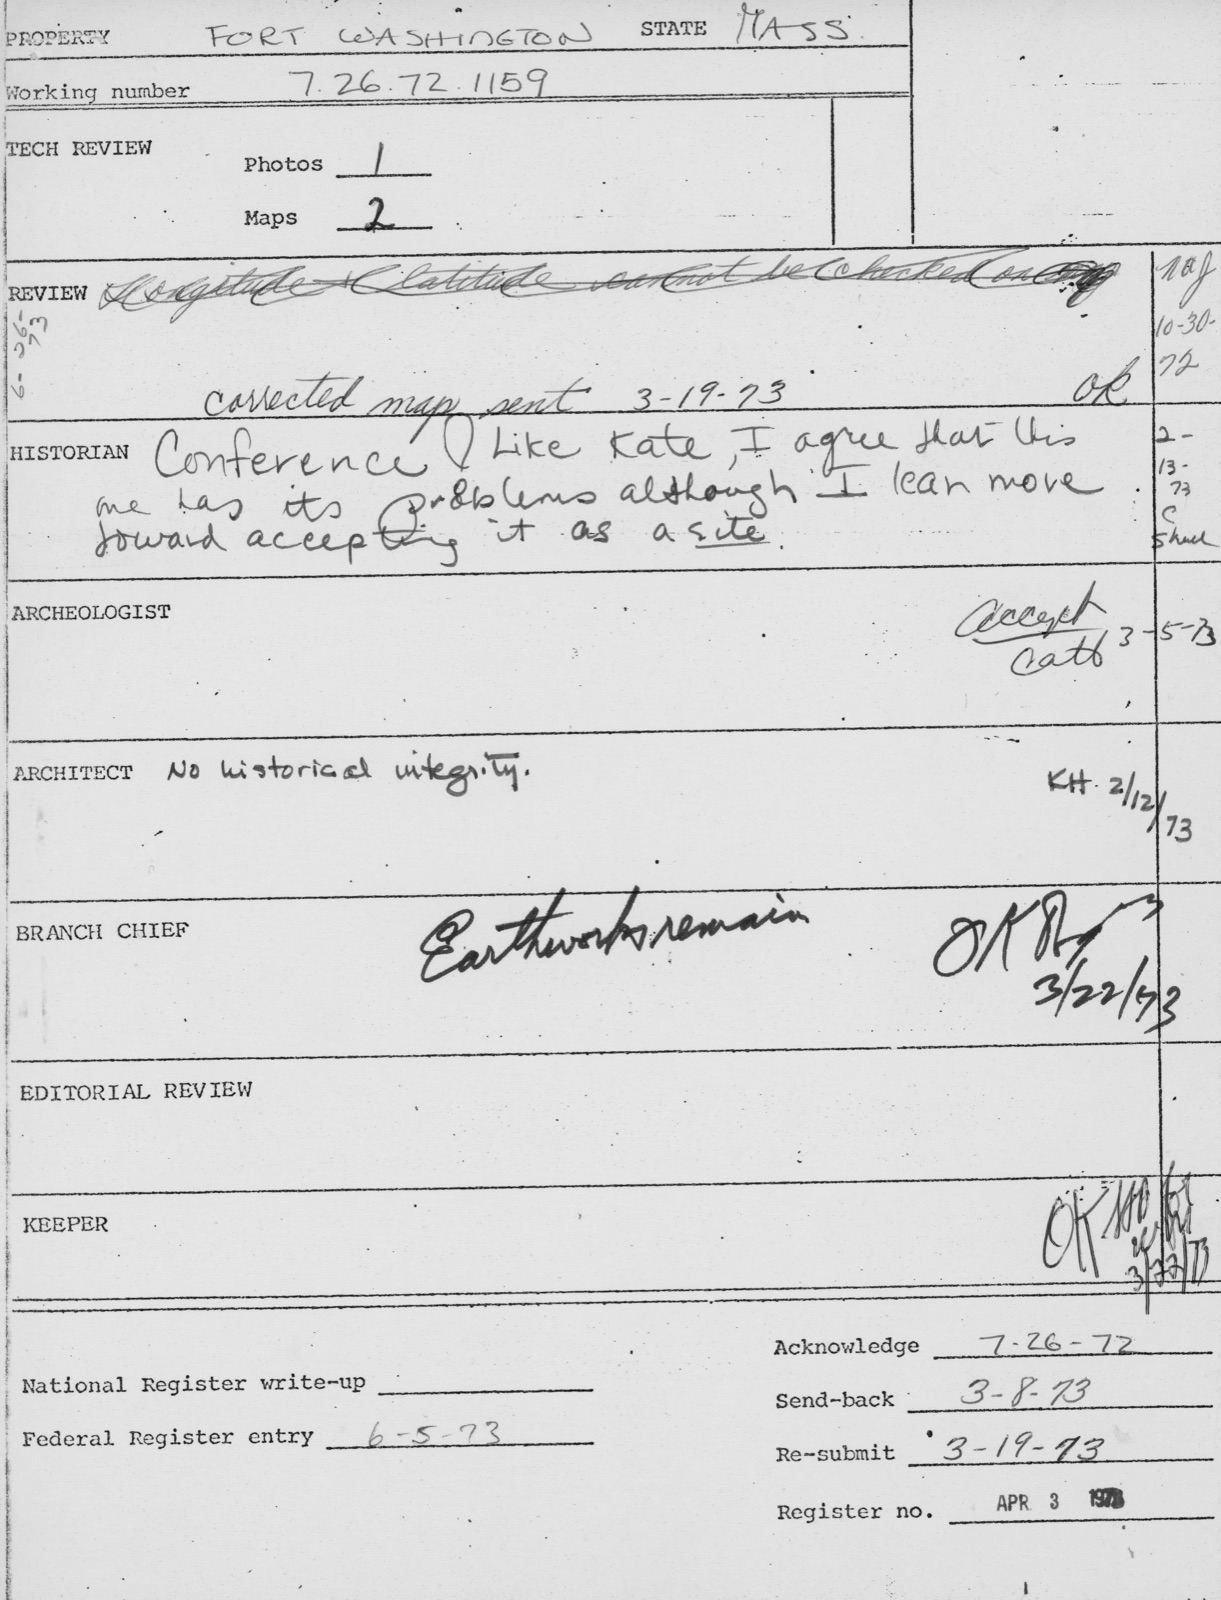 PROPERTY FORT WASHINGTON STATE MASS.
Working number 7.26.72.1159
TECH REVIEW
Photos 1
Maps 2
REVIEW Longitude + latitude cannot be checked on
10-30-
72
6-26-
73
corrected map sent 3-19-73 OK
HISTORIAN Conference! Like Kate, I agree that this
one has its problems although I lean more
toward accepting it as a site.
2-
13-
73
C
ARCHEOLOGIST
accept
3-5-73
ARCHITECT No historical integrity.
KH 2/12/73
BRANCH CHIEF Earthworks remain OK
3/22/73
EDITORIAL REVIEW
KEEPER OK
3/22/73
Acknowledge 7-26-72
National Register write-up
Send-back 3-8-73
Federal Register entry 6-5-73
Re-submit 3-19-73
Register no. APR 3 1973